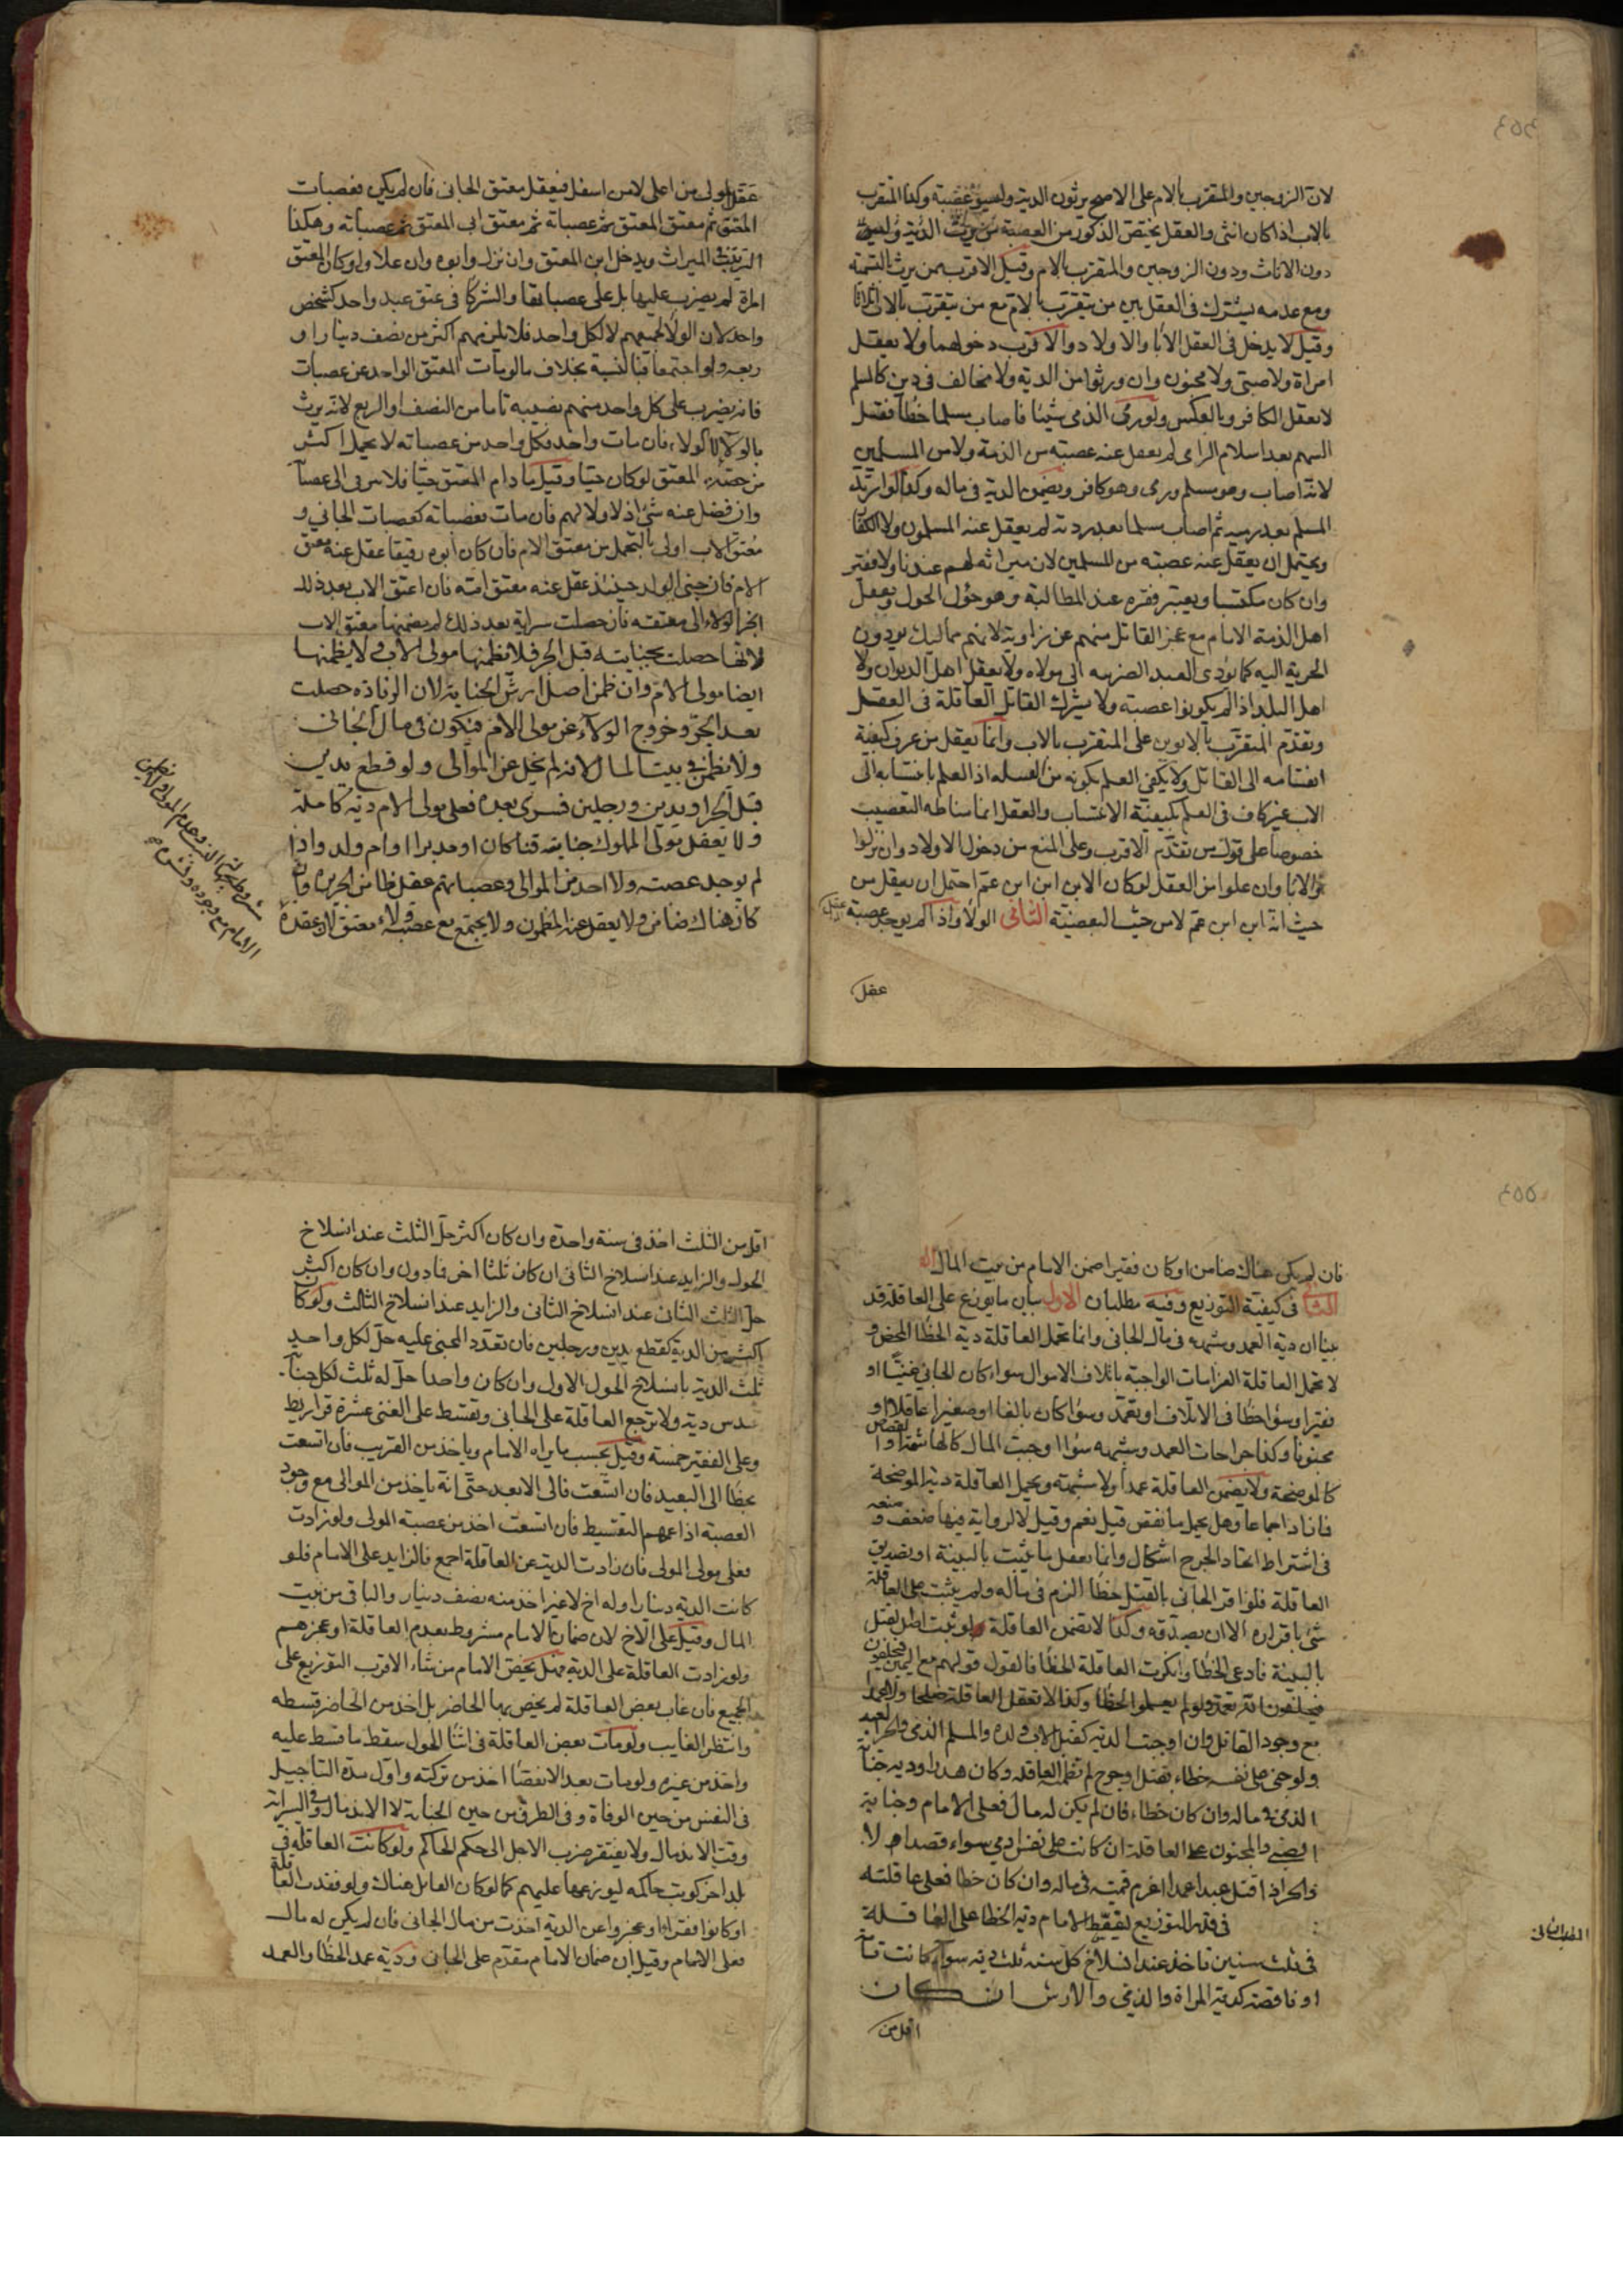 لان الزوجين والمتقرب بالام على الاصح يرثون الدية وليسو عصبة وكذا المتقرب
بالاب اذا كان انثى والعقل يختص الذكور من العصبة
دون الاناث ودون الزوجين والمتقرب بالام وقيل الاقرب ممن يرث بالتسمية
ومع عدمه يشترك في العقل بين من يتقرب بالام مع من يتقرب بالاب اثلاثا
وقيل لا يدخل في العقل الآبا والاولاد والاقرب دخولهما ولا يعقل
امراة ولا صبي ولا مجنون وان ورثوا من الدية ولا مخالف في دين كالمسلم
لا يعقل الكافر وبالعكس ولو رمى الذمي شيئا فاصاب مسلما خطأ فقتل
السهم بعد اسلام الرامي لم يعقل عنه عصبته من الذمة ولا من المسلمين
لانه اصاب وهو مسلم ورمى وهو كافر ويضمن الدية في ماله وكذا لو ارتد
المسلم بعد رميه ثم اصاب مسلما بعد ردته لم يعقل عنه المسلمون ولا الكفار
ويحتمل ان يعقل عنه عصبته من المسلمين لان ميراثه لهم عندنا ولا فقير
وان كان مكتسبا ويعتبر فقره عند المطالبة وهو حؤل الحول ويعقل
اهل الذمة الامام مع عجز القاتل منهم عن زاوية لانهم مماليك يودون
الجزية اليه كما يؤدي العبد الضريبه الى مولاه ولا يعقل اهل الديوان ولا
اهل البلد اذا لم يكونوا عصبة ولا يشترك القاتل العاقلة في العقل
ويقدم المتقرب بالابوين على المتقرب بالاب وانما يعقل من عرف كيفية
انتسابه الى القاتل ولا يكفي العلم بكونه من القبيله اذ العلم بانتسابه الى
الاب غير كاف في العلم بكيفية الانتساب والعقل انما مناطه التعصيب
خصوصا على قول من تقدم الاقرب وعلى المنع من دخول الاولاد وان نزلوا
والابا وان علوا من العقل لو كان الابن ابن ابن عم احتمل ان يعقل من
حيث انه ابن ابن عم لا من حيث البعضية الثاني الولا واذا لم يوجد عصبة
عقل
عقل المولى من اعلى لا من اسفل فيعقل معتق الجاني فان لم يكن فعصبات
المعتق ثم معتق المعتق ثم عصباته ثم معتق ابي المعتق ثم عصباته وهكذا
الترتيب في الميراث ويدخل ابن المعتق وان نزل وابوه وان علا ولو كان المعتق
امراة لم يضرب عليها بل على عصباتها والشركا في عتق عبد واحد كشخص
واحد لان الولا لجميعهم لا لكل واحد فلا يلزمهم اكثر من نصف دينار او
ربعه ولو اجتمعا فبالنسبة بخلاف ما لو مات المعتق الواحد عن عصبات
فانه يضرب على كل واحد منهم نصيبه تاما من النصف او الربع لانه يرث
بالولاء لا الولاء فان مات واحد فكل واحد من عصباته لا يحمل اكثر
من حصته المعتق لو كان حيا وقيل ما دام المعتق حيا فلا يرقى الى عصباته
وان فضل عنه شئ اذ لا ولا لهم فان مات فعصباته كعصبات الجاني و
معتق الاب اولى بالتحمل من معتق الام فان كان ابوه رقيقا عقل عنه معتق
الام فان جنى الولد حينئذ عقل عنه معتق امه فان اعتق الاب بعد ذلك
انجر الولاء الى معتقه فان حصلت سراية بعد ذلك لم يضمنها معتق الاب
لانها حصلت بجنايته قبل الجر فلا يضمنها مولى الاب ولا يضمنها
ايضا مولى الام وان ضمن اصل ارش الجناية لان الزياده حصلت
بعد الجر وخروج الولاء عن مولى الام فتكون في مال الجاني
ولا يضمن في بيت المال لانه لم يخل عن الموالى ولو قطع يدين
قبل الجر او يدين ورجلين فسرى بعده فعلى مولى الام دية كاملة
ولا يعقل مولى المملوك جنايته قنا كان او مدبرا او ام ولد واذا
لم يوجد عصبه ولا احد من الموالى وعصباتهم عقل ضامن الجريره وان
كان هناك ضامن ولا يعقل عن المضمون ولا يجتمع مع عصبه ولا معتق لان عقده
فان لم يكن هناك ضامن او كان فقيرا ضمن الامام من بيت المال
في كيفية التوزيع وفيه مطلبان الاول بيان ما يوزع على العاقلة قد
بينا ان دية العمد وشبهه في مال الجاني وانما تحمل العاقلة دية الخطأ المحض و
لا تحمل العاقلة الغرامات الواجبة باتلاف الاموال سواء كان الجاني غنيا او
فقيرا وسواء اخطأ في الاتلاف او تعمد وسواء كان بالغا او صغيرا عاقلا او
مجنونا وكذا جراحات العمد وشبهه سواء اوجبت المال كالهاشمة او القصاص
كالموضحة ولا يضمن العاقلة عمدا ولا شبهه ويحمل العاقلة دية الموضحة
فما زاد اجماعا وهل يحمل ما نقص قيل نعم وقيل لا لرواية فيها ضعف و
في اشتراط اتحاد الجرح اشكال وانما يعقل ما يثبت بالبينة او تصديق
العاقلة فلو اقر الجاني بالقتل خطأ الزم في ماله ولم يثبت على العاقلة
شئ باقراره الا ان يصدقه وكذا لا تضمن العاقلة ولو ثبت اصل القتل
بالبينة فادعى الخطأ وانكرت العاقلة الخطأ فالقول قولهم مع اليمين فيحلفون
وكذا لا تعقل العاقلة صلحا ولا عمدا
مع وجود القاتل وان اوجبت الدية كقتل الاب ولده والمسلم الذمي والحر العبد
ولو جنى على نفسه خطاء بقتل او جرح لم تضمنه العاقله وكان هدرا ودية جناية
الذمي في ماله وان كان خطاء فان لم يكن له مال فعلى الامام وجناية
الصبي والمجنون على العاقلة ان كانت على نفس ادمي سواء قصدا ام لا
والحر اذا قتل عبدا عمدا اغرم قيمته في ماله وان كان خطأ فعلى عاقلته
المطلب الثاني
في قدر التوزيع الامام دية الخطا على العاقلة
في ثلث سنين تاخذ عند انسلاخ كل سنه ثلث دية سواء كانت تامة
او ناقصه كدية المراة والذمي والارش ان كان
اقل من
اقل من الثلث اخذ في سنة واحدة وان كان اكثر حل الثلث عند انسلاخ
الحول والزايد عند انسلاخ الثاني ان كان ثلثا اخر فما دون وان كان اكثر
حل الثلث الثاني عند انسلاخ الثاني والزايد عند انسلاخ الثالث ولو كان
اكثر من الدية كقطع يدين ورجلين فان تعدد المجنى عليه حل لكل واحد
ثلث الدية بانسلاخ الحول الاول وان كان واحدا حل له ثلث لكل جناية
سدس دية ولا ترجع العاقلة على الجاني وتقسط على الغني عشرة قراريط
وعلى الفقير خمسة وقيل بحسب ما يراه الامام وياخذ من القريب فان اتسعت
تخطا الى البعيد فان اتسعت فالى الابعد حتى انه ياخذ من الموالى مع وجود
العصبة اذا عمهم التقسيط فان اتسعت اخذ من عصبة المولى ولو زادت
فعلى مولى المولى فان زادت الدية عن العاقلة اجمع فالزايد على الامام فلو
كانت الدية دينارا وله اخ لا غير اخذ منه نصف دينار والباقي من بيت
المال وقيل على الاخ لان ضمان الامام مشروط بعدم العاقلة او عجزهم
ولو زادت العاقلة على الدية قيل يخص الامام من شاء الاقرب التوزيع على
الجميع فان غاب بعض العاقلة لم يخص بها الحاضر بل اخذ من الحاضر قسطه
وانتظر الغايب ولو مات بعض العاقلة في اثنا الحول سقط ما قسط عليه
واخذ من غيره ولو مات بعد الانقضا اخذ من تركته واول مدة التاجيل
في النفس من حين الوفاة وفي الطرف من حين الجناية لا الاندمال وفي السراية
وقت الاندمال ولا يفتقر ضرب الاجل الى حكم الحاكم ولو كانت العاقلة في
بلد اخر كوتب حاكمه ليوزعها عليهم كما لو كان القاتل هناك ولو فقدت العاقلة
او كانوا فقراء او عجزوا عن الدية اخذت من مال الجاني فان لم يكن له مال
فعلى الامام وقيل ان ضمان الامام مقدم على الجاني ودية عمد الخطأ والعمد